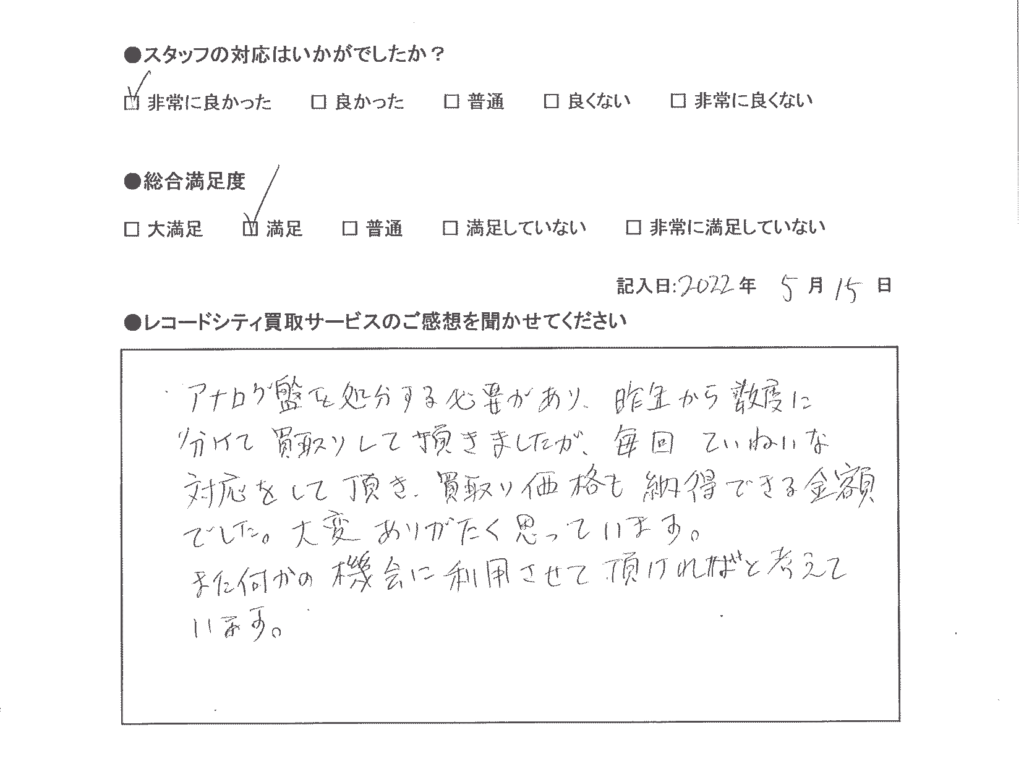 ●スタッフの対応はいかがでしたか？
☑ 非常に良かった　□ 良かった　□ 普通　□ 良くない　□ 非常に良くない
●総合満足度
□ 大満足　☑ 満足　□ 普通　□ 満足していない　□ 非常に満足していない
記入日:2022年 5月15日
●レコードシティ買取サービスのご感想を聞かせてください
アナログ盤を処分する必要があり、昨年から数度に
分けて買取りして頂きましたが、毎回ていねいな
対応をして頂き、買取り価格も納得できる金額
でした。大変ありがたく思っています。
また何かの機会に利用させて頂ければと考えて
います。